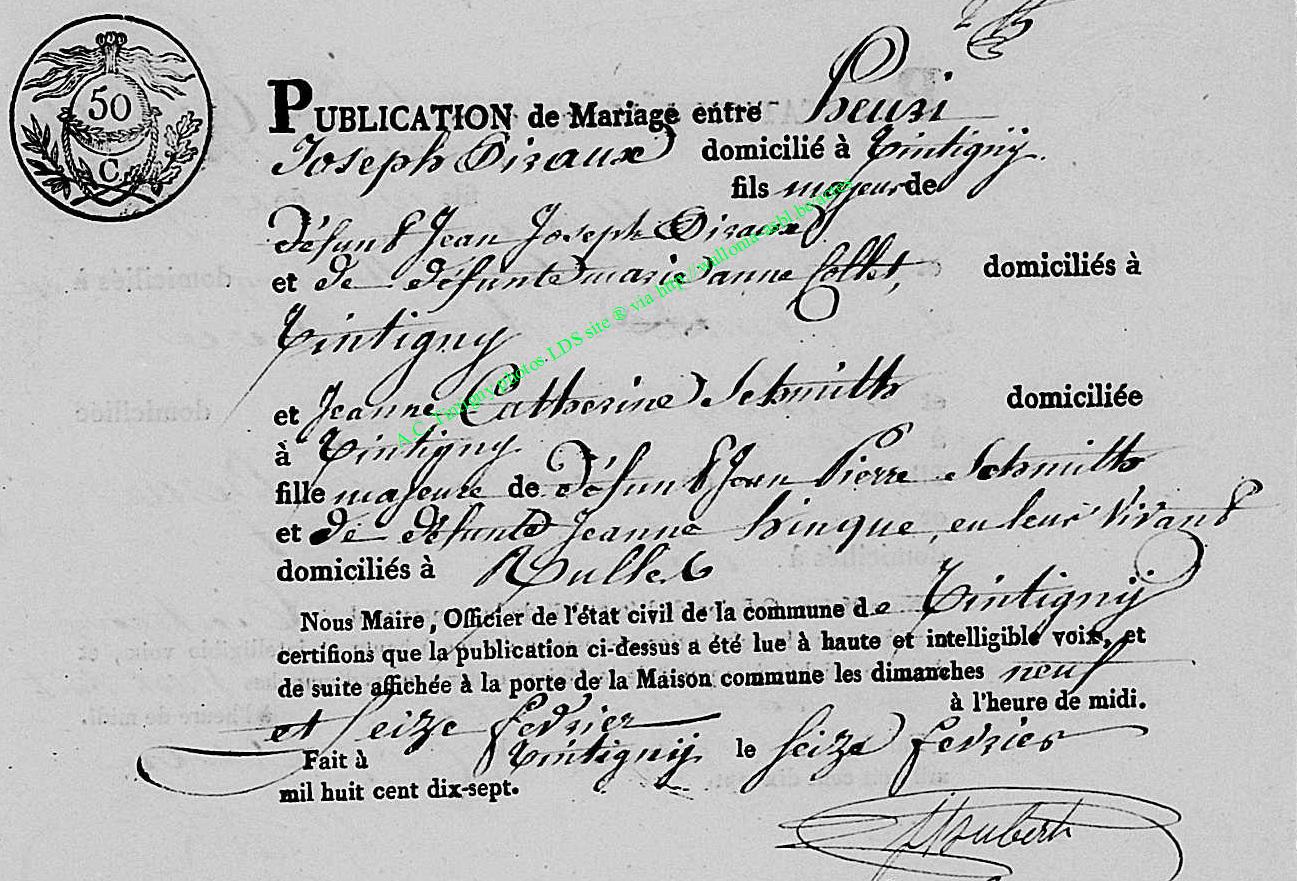 50
C.
PUBLICATION de Mariage entre henri
Joseph Diraux domicilié à Tintigny.
fils majeur de
défunt Jean Joseph Diraux
et de défunte marie anne Collet, domiciliés à
Tintigny
et Jeanne Catherine Schmith domiciliée
à Tintigny
fille majeure de défunt Jean Pierre Schmith
et de défunte Jeanne hinque, en leur vivant
domiciliés à Rulles
Nous Maire, Officier de l'état civil de la commune de Tintigny
certifions que la publication ci-dessus a été lue à haute et intelligible voix, et
de suite affichée à la porte de la Maison commune les dimanches neuf
et seize fevrier à l'heure de midi.
Fait à Tintigny le seize fevrier
mil huit cent dix-sept.
A.C. Tintigny photos LDS site ® via http://wallonia-asbl.be/actes